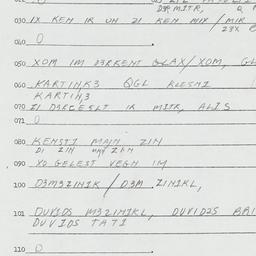 D3R MITR,
030 IX KEN IR UN ZI KEN MIX / MIR
23X
040 O
050 XOM IM D3RKENT GLAX / XOM, GL
060 KARTINK3 QGL KLESNI
KARTIN3
070 ZI D3RCESLT IR MITR, ALIS
071 O
080 KENSTI MAIN ZIN
DI ZIN MAI ZEN
090 XO GELEST VEGN IM
100 D3M3ZINIK / D3M ZINIKL,
101 DUVIDS M3ZINIKL, DUVIDZS BRI
DUVIDS TATI
110 O